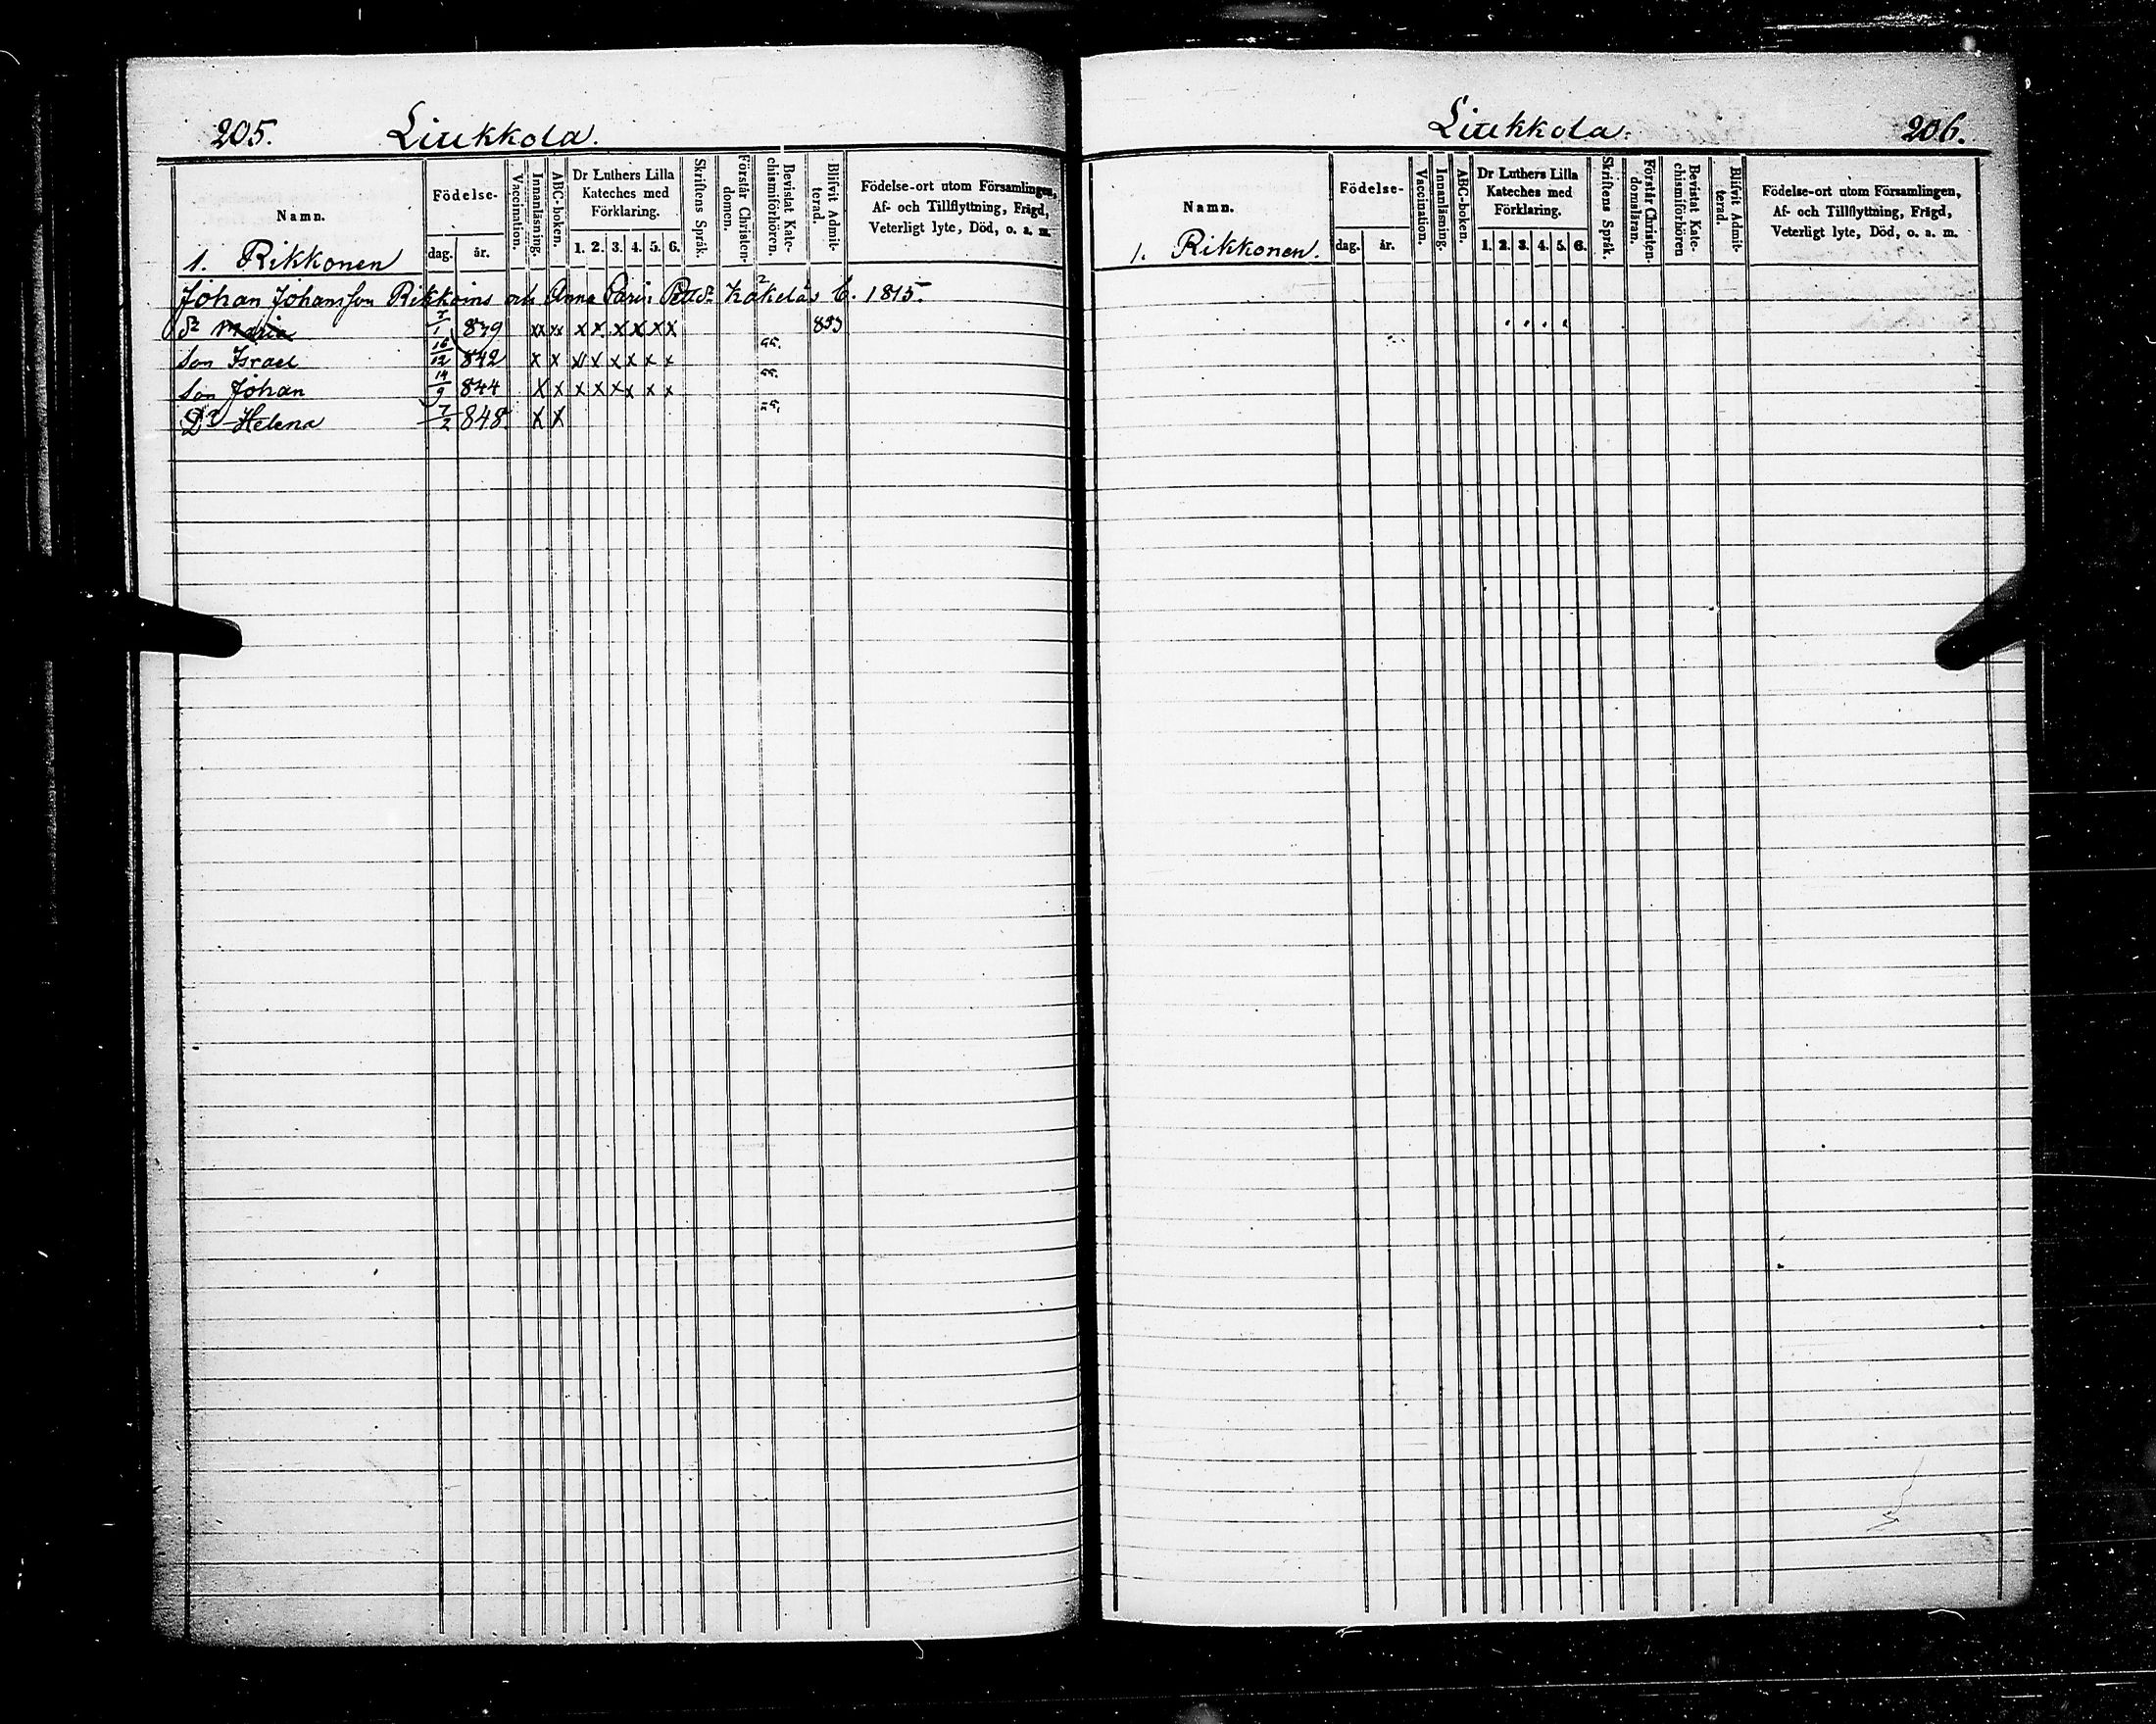 205. Liukkola.
Namn.
Födelse-
dag. år.
Vaccination.
Innanläsning.
ABC-boken.
Dr Luthers Lilla
Kateches med
Förklaring.
1. 2. 3. 4. 5. 6.
Skriftens Språk.
Förstår Christen-
domen.
Bevistat Kate-
chismiförhören.
Blifvit Admit-
terad.
Födelse-ort utom Församlingen,
Af- och Tillflyttning, Frägd,
Veterligt lyte, Död, o. a. m.
1. Rikkonen
Johan Johansson Rikkoins och Anna 1815.
Maria 1 839 xx xx x x x x x x 853
Son Israel 16/12 842 x x x x x x x x 55.
Son Johan 14/9 844 x x x x x x x x 55.
Dr Helena 7/2 848. x x
Liukkola. 206.
Namn.
Födelse-
dag. år.
Vaccination.
Innanläsning.
ABC-boken.
Dr Luthers Lilla
Kateches med
Förklaring.
1. 2. 3. 4. 5. 6.
Skriftens Språk.
Förstår Christen-
domsläran.
Bevistat Kate-
chismiförhören
Blifvit Admit-
terad.
Födelse-ort utom Församlingen,
Af- och Tillflyttning, Frägd,
Veterligt lyte, Död, o. a. m.
1. Rikkonen.